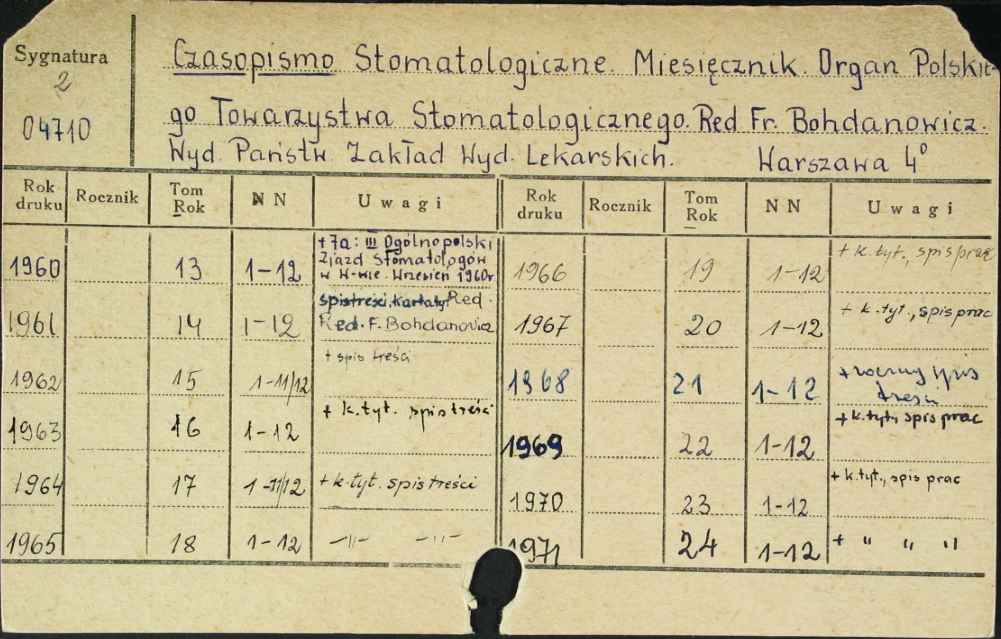 Sygnatura
2
04710
Czasopismo Stomatologiczne. Miesięcznik. Organ Polskie-
go Towarzystwa Stomatologicznego. Red Fr. Bohdanowicz.
Wyd. Państw. Zakład Wyd. Lekarskich. Warszawa 4°
Rok druku Rocznik Tom Rok N N Uwagi Rok druku Rocznik Tom Rok N N Uwagi
+ 7a: III Ogólnopolski
Zjazd Stomatologów
1960 13 1-12 w W-wie. Wrzesień 1960r
spis treści, karta tyt Red.
1961 14 1-12 Red. F. Bohdanowicz
+ spis treści
1962 15 1-11/12
1963 16 1-12 + k. tyt. spis treści
1964 17 1-11/12 + k. tyt. spis treści
1965 18 1-12 -"- -"-
1966 19 1-12 + k. tyt., spis prac
1967 20 1-12 + k. tyt., spis prac
1968 21 1-12 + roczny spis
treści
1969 22 1-12 + k. tyt, spis prac
1970 23 1-12 + k. tyt., spis prac
1971 24 1-12 + " " "